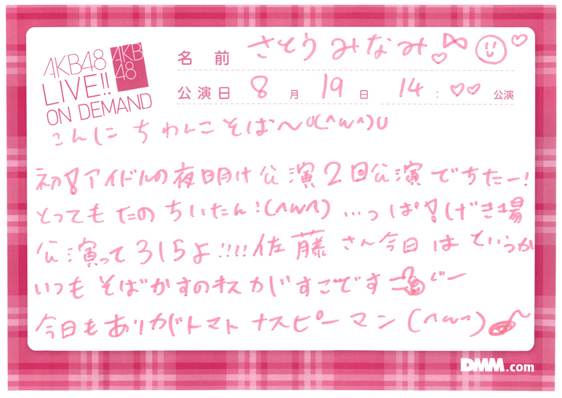 AKB48
LIVE!!
ON DEMAND
AKB
48
名前 さとうみなみ
公演日 8月19日 14:♡♡公演
こんにちわんこそば〜U(^ω^)U
初!アイドルの夜明け公演2回公演でちたー!
とってもたのちいたん!(^ω^) ...っぱ!げき場
公演って315よ!!!!佐藤さん今日はというか
いつもそばかすのキスカがすごです
今日もありがトマトナスピーマン(^ω^)
DMM.com